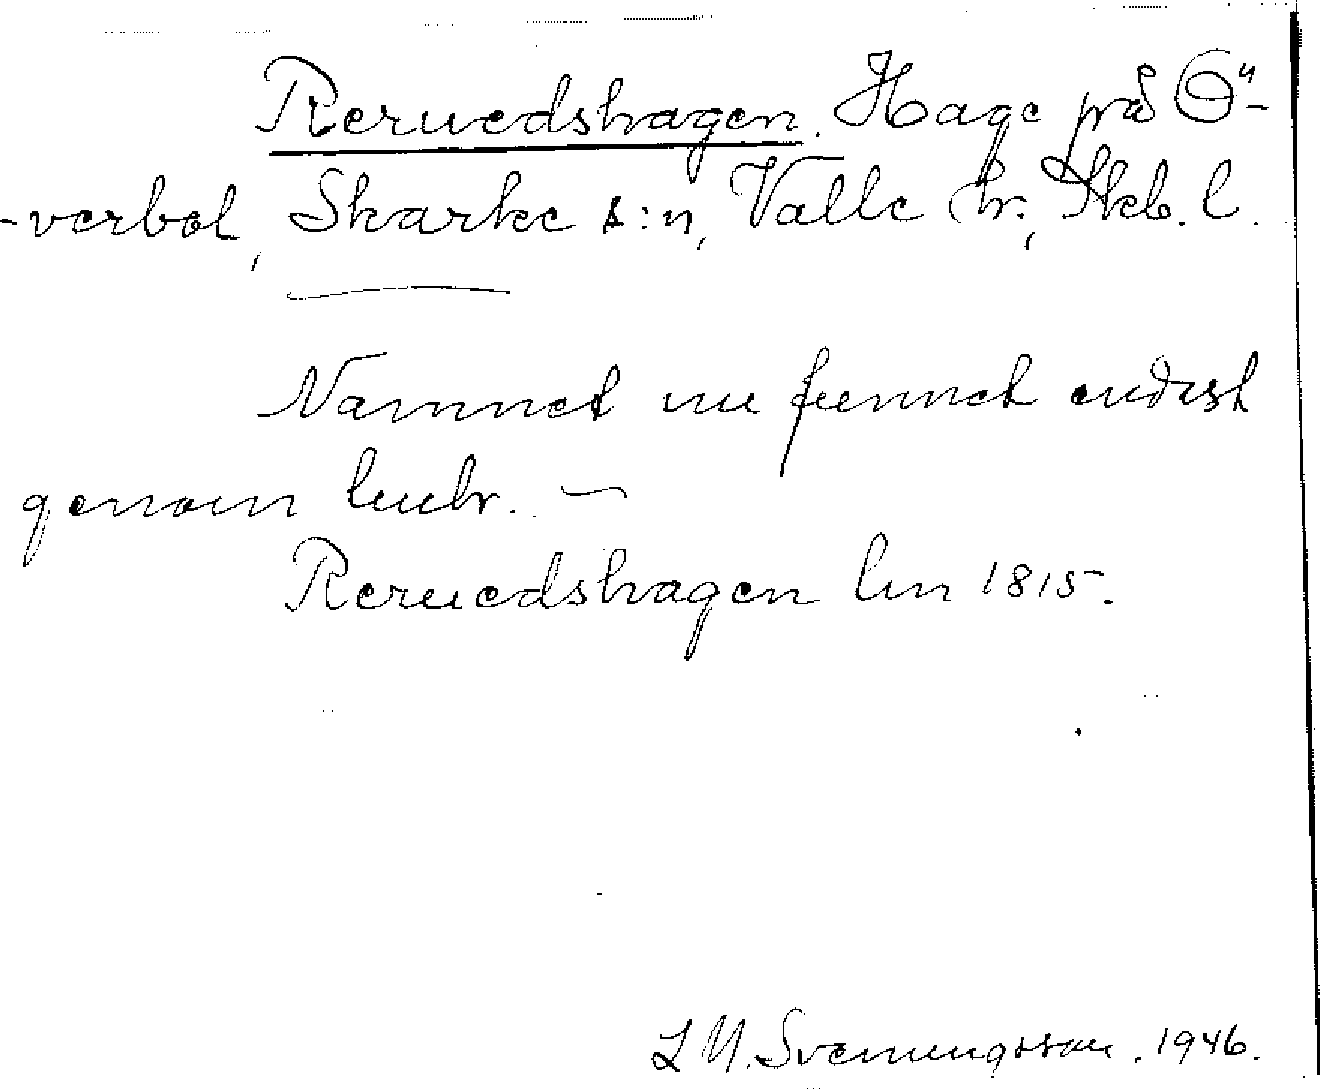 Reruedshagen. Hage på Ö-
-verbol, Skarke s:n, Valle hr., Skb. l.
Namnet nu funnet endast
genom lmhr. —
Reruedshagen lm 1815.
L M. Svenungsson. 1946.